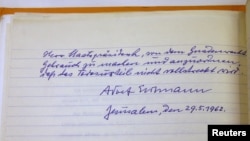 Herr Staatspräsident, von dem Gnadenrecht
Gebrauch zu machen und anzuordnen,
daß das Todesurteil nicht vollstreckt wird.
Adolf Eichmann
Jerusalem, den 29.5.1962.
Reuters